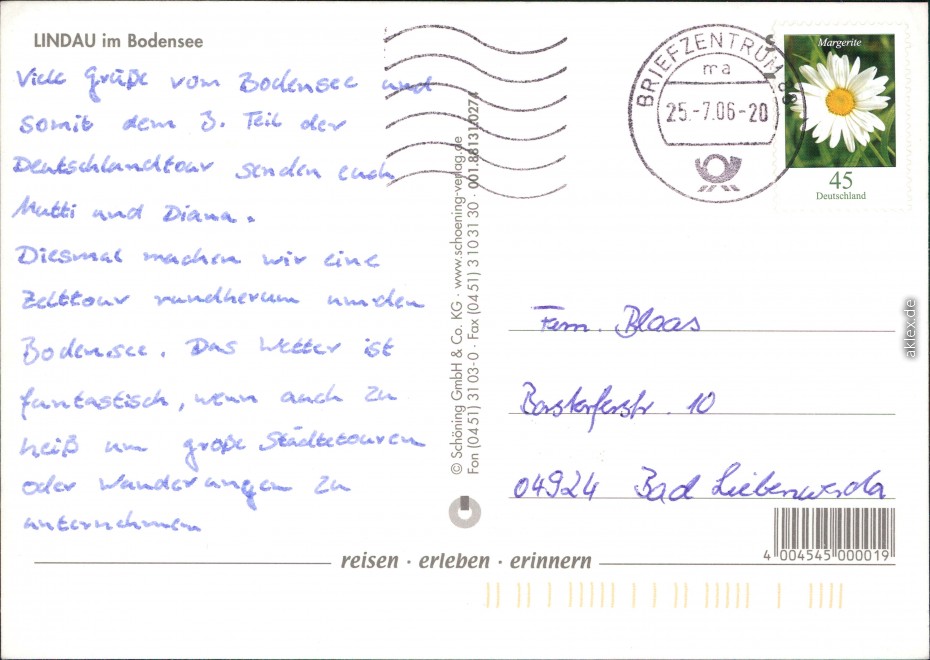 LINDAU im Bodensee
Viele Grüße vom Bodensee und
somit dem 3. Teil der
Deutschlandtour senden euch
Mutti und Diana.
Diesmal machen wir eine
Zelttour rundherum um den
Bodensee. Das Wetter ist
fantastisch, wenn auch zu
heiß um große Städtetouren
oder Wanderungen zu
unternehmen
© Schöning GmbH & Co. KG · www.schoening-verlag.de
Fon (0451) 31 03-0 · Fax (0451) 3 10 31 30 · 001.88131.0274
BRIEFZENTRUM
ma
25.-7.06-20
Margerite
45
Deutschland
Fam. Blaas
Borsdorferstr. 10
04924 Bad Liebenwerda
4 004545 000019
reisen · erleben · erinnern
aklex.de